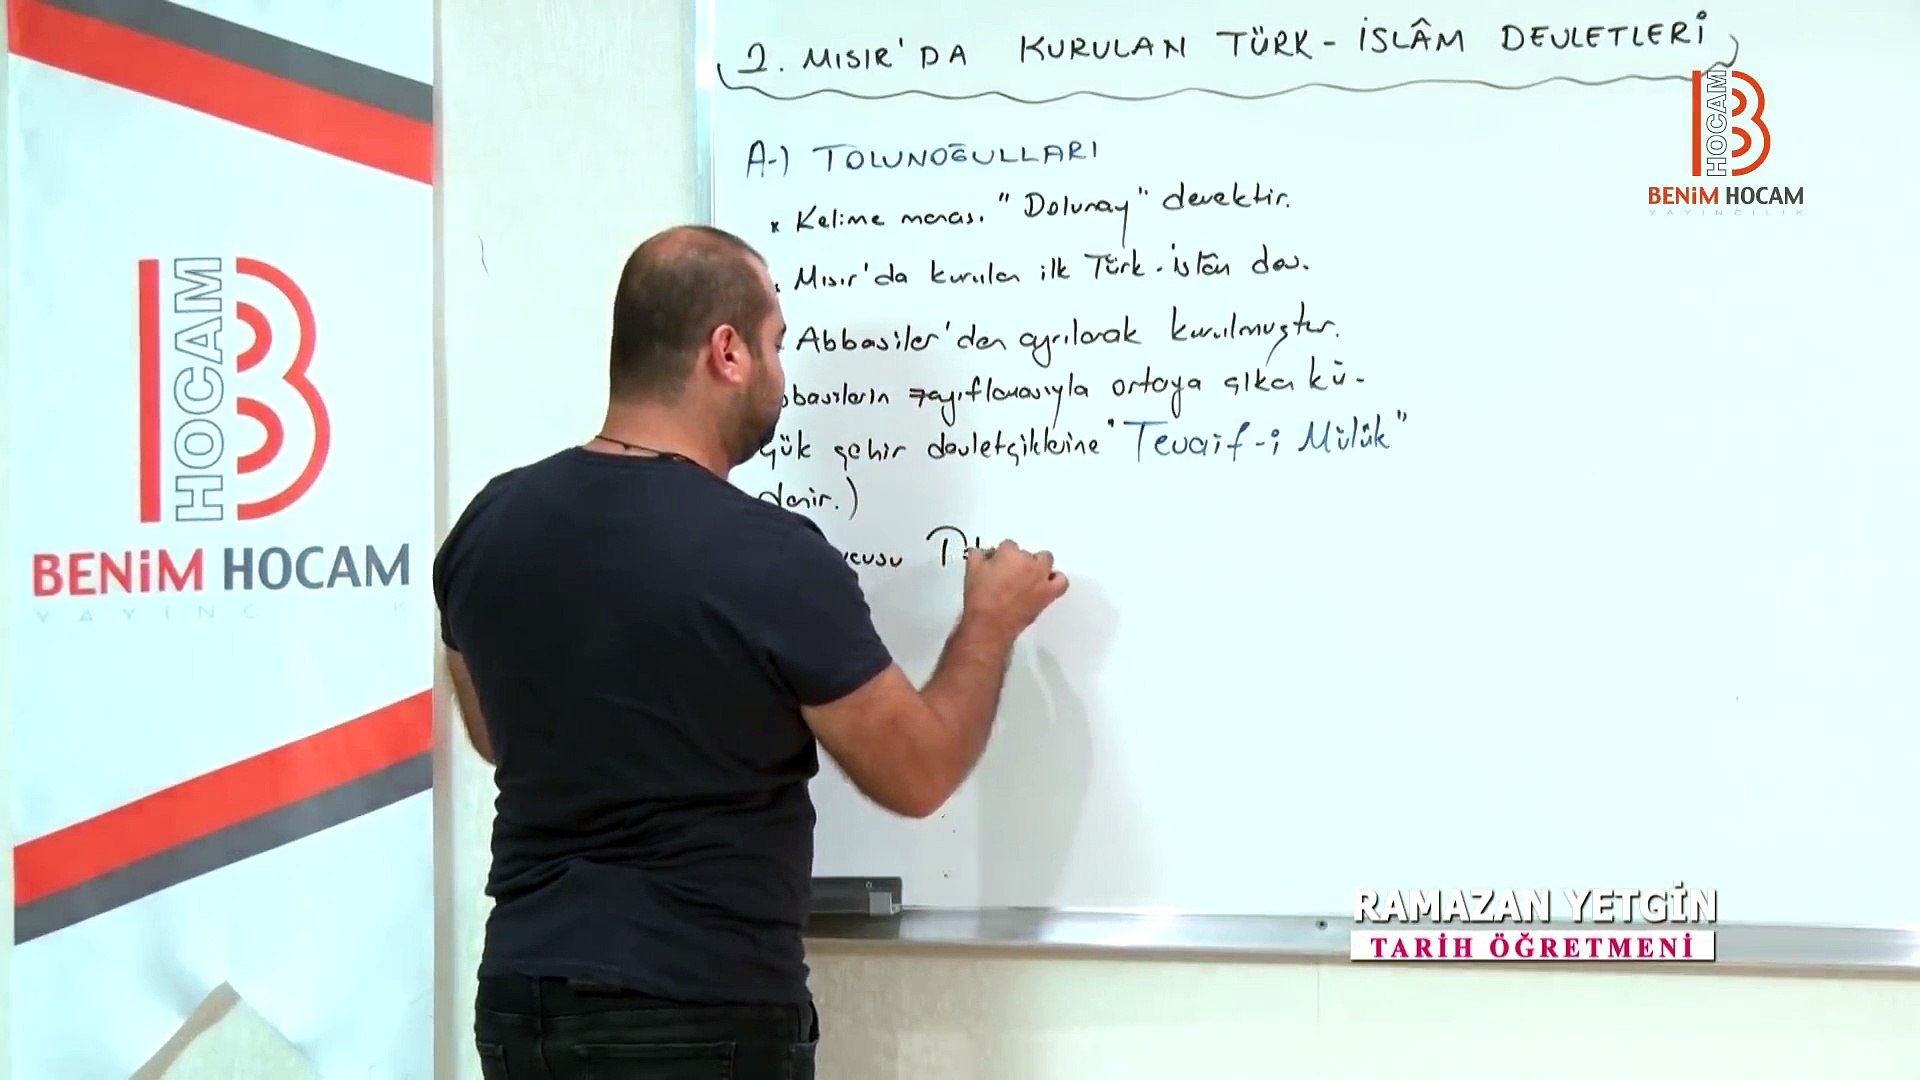 2. MISIR'DA KURULAN TÜRK-İSLÂM DEVLETLERİ
A-) TOLUNOĞULLARI
* Kelime manası "Dolunay" demektir.
Mısır'da kurulan ilk Türk-İslâm dev.
Abbasiler'den ayrılarak kurulmuştur.
zayıflamasıyla ortaya çıkan kü-
çük şehir devletçiklerine "Tevaif-i Mülûk"
denir.)
HOCAM B
BENİM HOCAM
YAYINCILIK
HOCAM B
BENİM HOCAM
RAMAZAN YETGİN
TARİH ÖĞRETMENİ